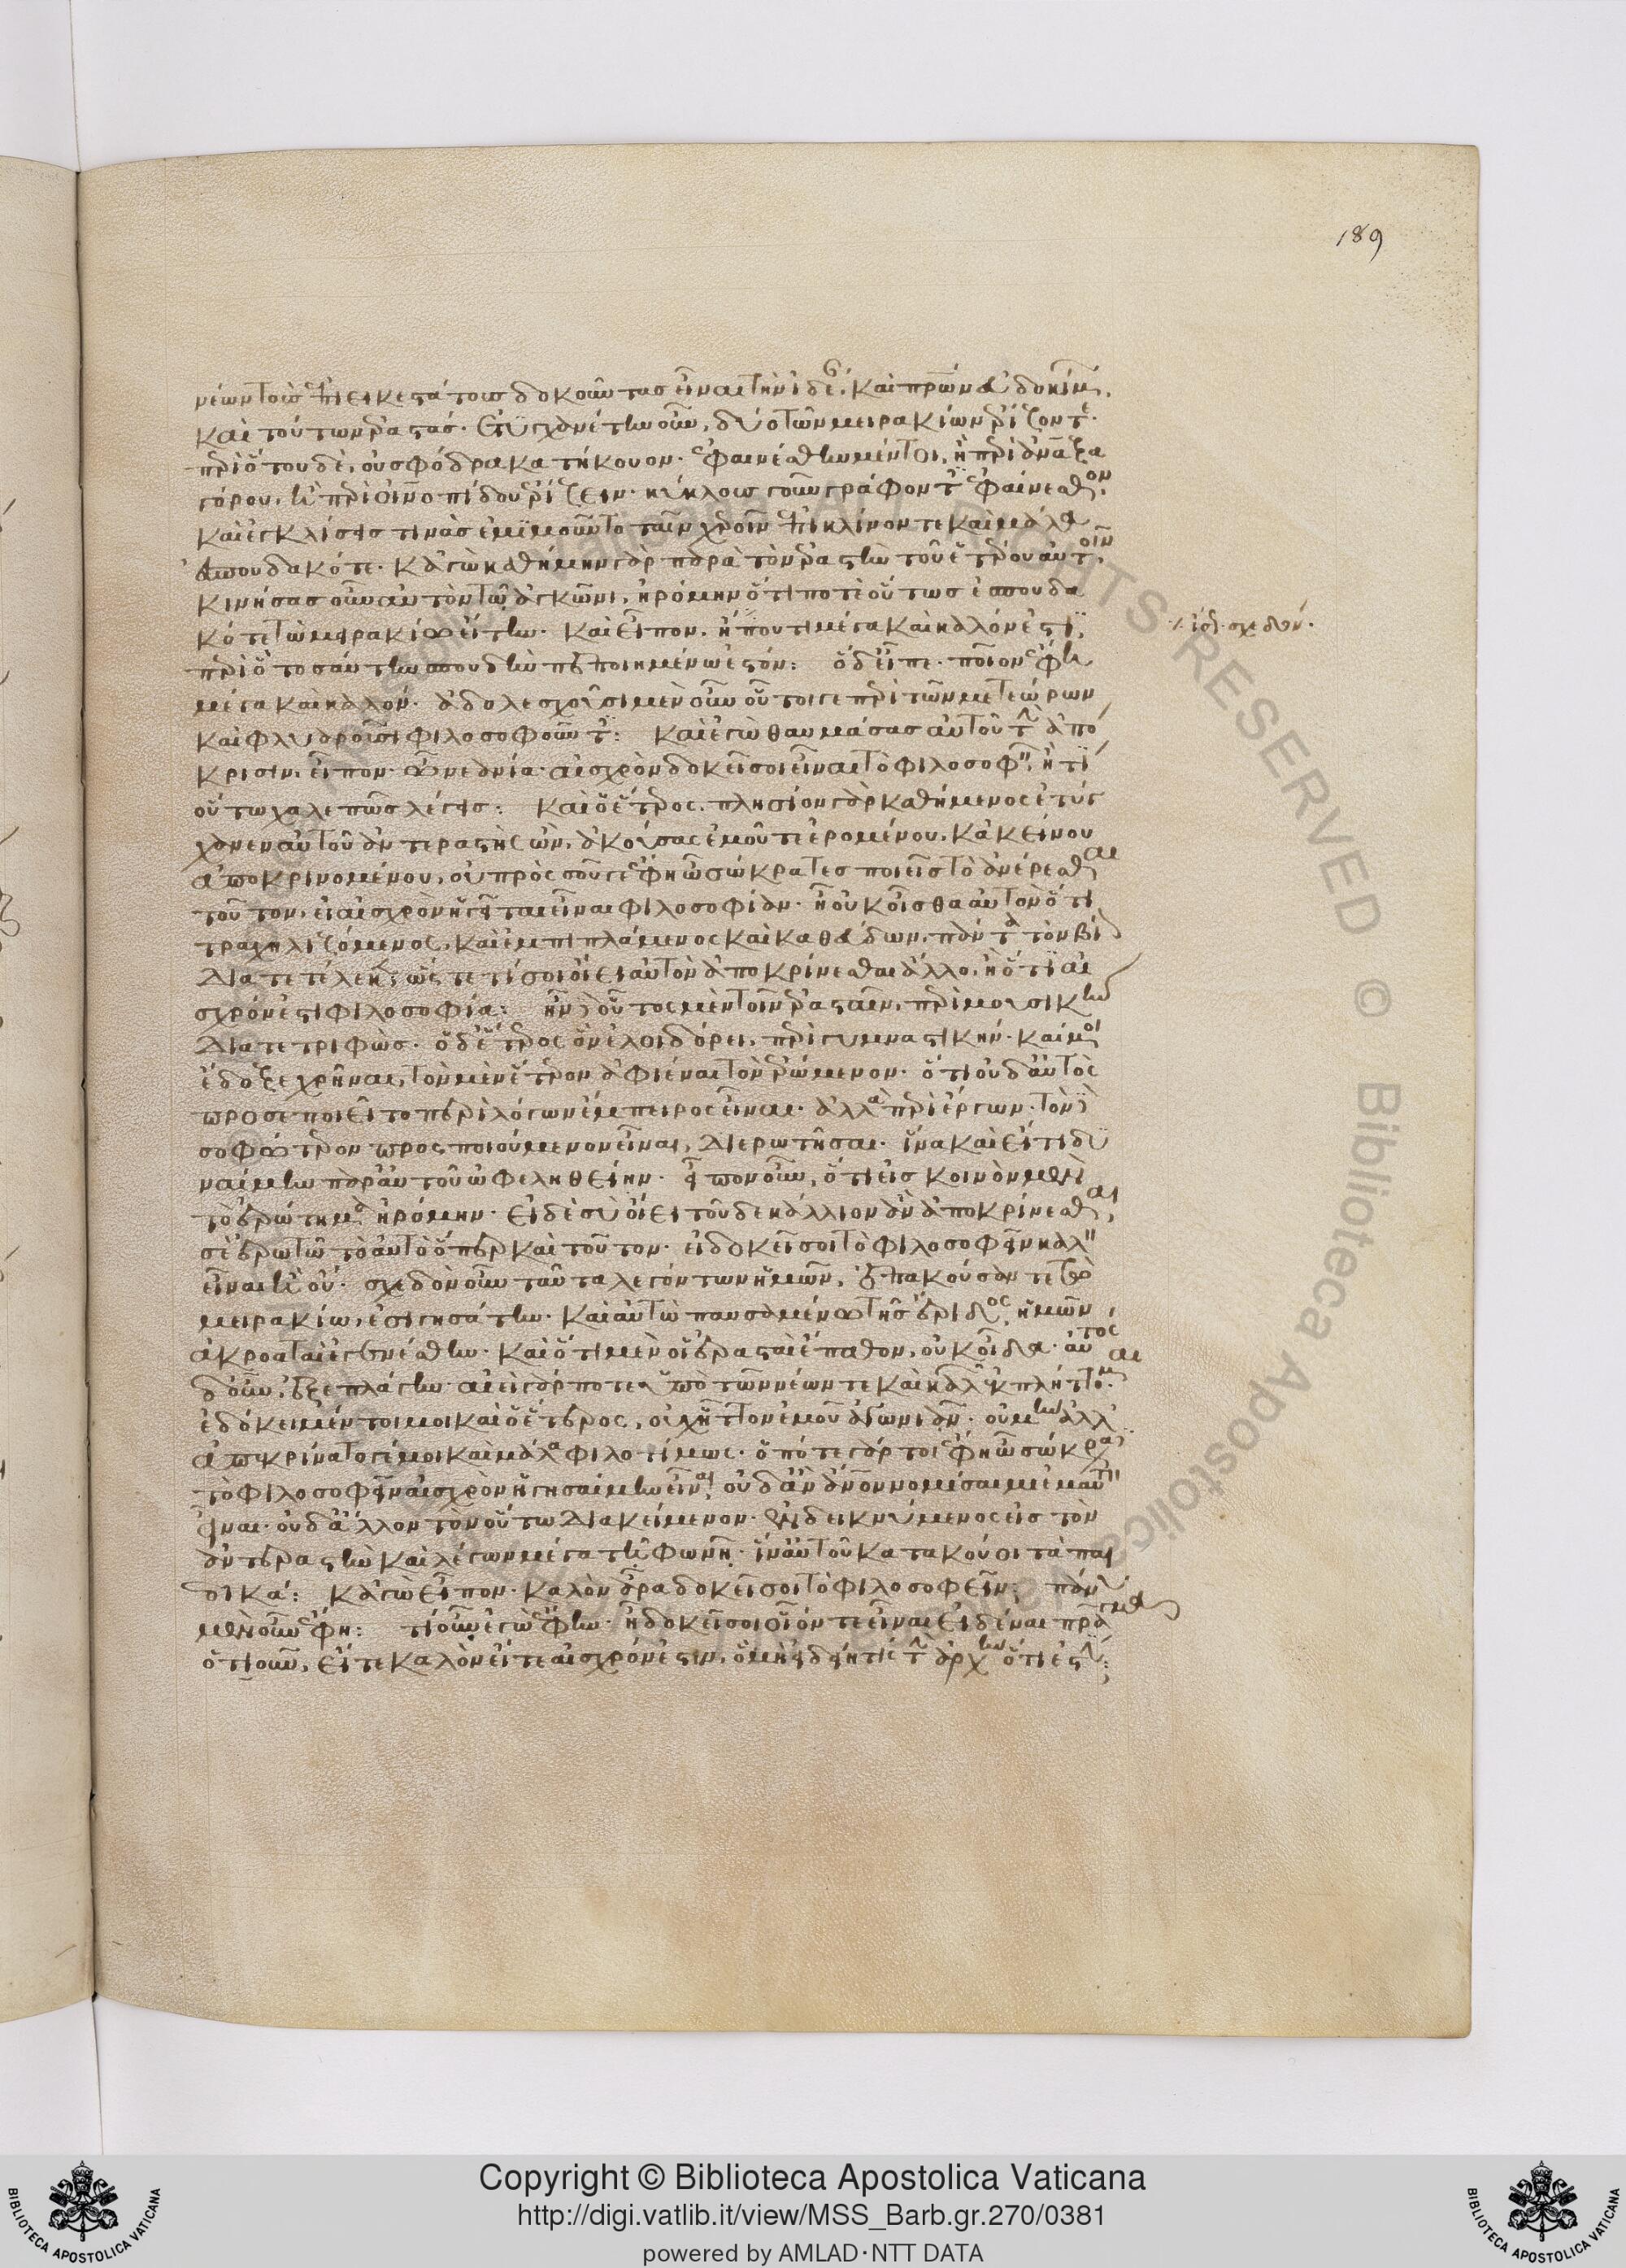 189
νέων τοὺς ἐπιεικεστάτους δοκοῦντας εἶναι τὴν ἰδέαν, καὶ πατέρων εὐδοκίμων,
καὶ τούτων ἐραστάς. ἐτυγχανέτην οὖν, δύο τῶν μειρακίων ἐρίζοντε.
περὶ ὅτου δὲ, οὐ σφόδρα κατήκουον. ἐφαινέσθην μέντοι, ἢ περὶ ἀναξα
γόρου, ἢ περὶ οἰνοπίδου ἐρίζειν. κύκλους γοῦν γράφοντε ἐφαινέσθην,
καὶ ἐγκλίσεις τινὰς ἐμιμοῦντο ταῖν χεροῖν ἐπικλίνοντε καὶ μάλα
ἐσπουδακότε. κἀγὼ καθήμην γὰρ παρὰ τὸν ἐραστὴν τοῦ ἑτέρου αὐτοῖν,
κινήσας οὖν αὐτὸν τῷ ἀγκῶνι, ἠρόμην ὅ τι ποτὲ οὕτως ἐσπουδα
κότε τὼ μειρακίω εἴτην. καὶ εἶπον, ἦ που τι μέγα καὶ καλόν ἐστι,
περὶ ὃ τοσαύτην σπουδὴν πεποιημένω ἐστόν: ὁ δ' εἶπε. ποῖον ἔφη
μέγα καὶ καλόν. ἀδολεσχοῦσι μὲν οὖν οὗτοί γε περὶ τῶν μετεώρων
καὶ φλυαροῦσι φιλοσοφοῦντες: καὶ ἐγὼ θαυμάσας αὐτοῦ τὴν ἀπό
κρισιν, εἶπον. ὦ νεανία. αἰσχρὸν δοκεῖ σοι εἶναι τὸ φιλοσοφεῖν, ἢ τί
οὕτω χαλεπῶς λέγεις: καὶ ὁ ἕτερος, πλησίον γὰρ καθήμενος ἐτύγ
χανεν αὐτοῦ ἀντεραστὴς ὤν, ἀκούσας ἐμοῦ τε ἐρομένου, κἀκείνου
ἀποκρινομένου, οὐ πρὸς σοῦ γε ἔφη ὦ σώκρατες ποιεῖς τὸ ἀνέρεσθαι
τοῦτον, εἰ αἰσχρὸν ἡγεῖται εἶναι φιλοσοφίαν. ἢ οὐκ οἶσθα αὐτὸν ὅτι
τραχηλιζόμενος, καὶ ἐμπιπλάμενος καὶ καθεύδων, πάντα τὸν βίον
διατετέλεκε, ὥστε τί σοι οἴει αὐτὸν ἀποκρίνεσθαι ἄλλο, ἢ ὅτι αἰ
σχρόν ἐστι φιλοσοφία: ἦν δὲ οὗτος μὲν τοῖν ἐρασταῖν, περὶ μουσικὴν
διατετριφώς. ὁ δ' ἕτερος ὃν ἐλοιδόρει, περὶ γυμναστικήν. καί μοι
ἔδοξε χρῆναι, τὸν μὲν ἕτερον ἀφιέναι τὸν ἐρώμενον. ὅτι οὐδ' αὐτὸς
προσεποιεῖτο περὶ λόγων ἔμπειρος εἶναι. ἀλλὰ περὶ ἔργων. τὸν δὲ
σοφώτερον προσποιούμενον εἶναι, διερωτῆσαι. ἵνα καὶ εἴ τι δυ
ναίμην παρ' αὐτοῦ ὠφεληθείην. εἶπον οὖν, ὅτι εἰς κοινὸν μὲν
τὸ ἐρώτημα ἠρόμην. εἰ δὲ σὺ οἴει τοῦδε κάλλιον ἂν ἀποκρίνεσθαι,
σὲ ἐρωτῶ τὸ αὐτὸ ὅπερ καὶ τοῦτον. εἰ δοκεῖ σοι τὸ φιλοσοφεῖν καλὸν
εἶναι ἢ οὔ. σχεδὸν οὖν ταῦτα λεγόντων ἡμῶν, ἐπακούσαντε τὼ
μειρακίω, ἐσιγησάτην. καὶ αὐτὼ παυσαμένω τῆς ἔριδος, ἡμῶν
ἀκροαταὶ ἐγενέσθην. καὶ ὅ τι μὲν οἱ ἐρασταὶ ἔπαθον, οὐκ οἶδα. αὐτὸς
δ' οὖν, ἐξεπλάγην. ἀεὶ γάρ ποτε ὑπὸ τῶν νέων τε καὶ καλῶν ἐκπλήττομαι.
ἐδόκει μέντοι μοι καὶ ὁ ἕτερος, οὐχ ἧττον ἐμοῦ ἀγωνιᾶν. οὐ μὴν ἀλλ'
ἀπεκρίνατό γέ μοι καὶ μάλα φιλοτίμως. ὁπότε γάρ τοι ἔφη ὦ σώκρατες
τὸ φιλοσοφεῖν αἰσχρὸν ἡγησαίμην εἶναι, οὐδ' ἂν ἄνθρωπον νομίσαιμι ἐμαυτὸν
εἶναι. οὐδ' ἄλλον τὸν οὕτω διακείμενον. ἐνδεικνύμενος εἰς τὸν
ἀντεραστὴν καὶ λέγων μεγάλῃ τῇ φωνῇ. ἵν' αὐτοῦ κατακούοι τὰ παι
δικά: κἀγὼ εἶπον. καλὸν ἄρα δοκεῖ σοι τὸ φιλοσοφεῖν: πάνυ
μὲν οὖν ἔφη: τί οὖν ἐγὼ ἔφην. ἦ δοκεῖ σοι οἷόν τε εἶναι εἰδέναι πρᾶγμα
ὁτιοῦν, εἴτε καλὸν εἴτε αἰσχρόν ἐστιν, ὃ μὴ εἰδείη τις τὴν ἀρχὴν ὅ τι ἐστι: